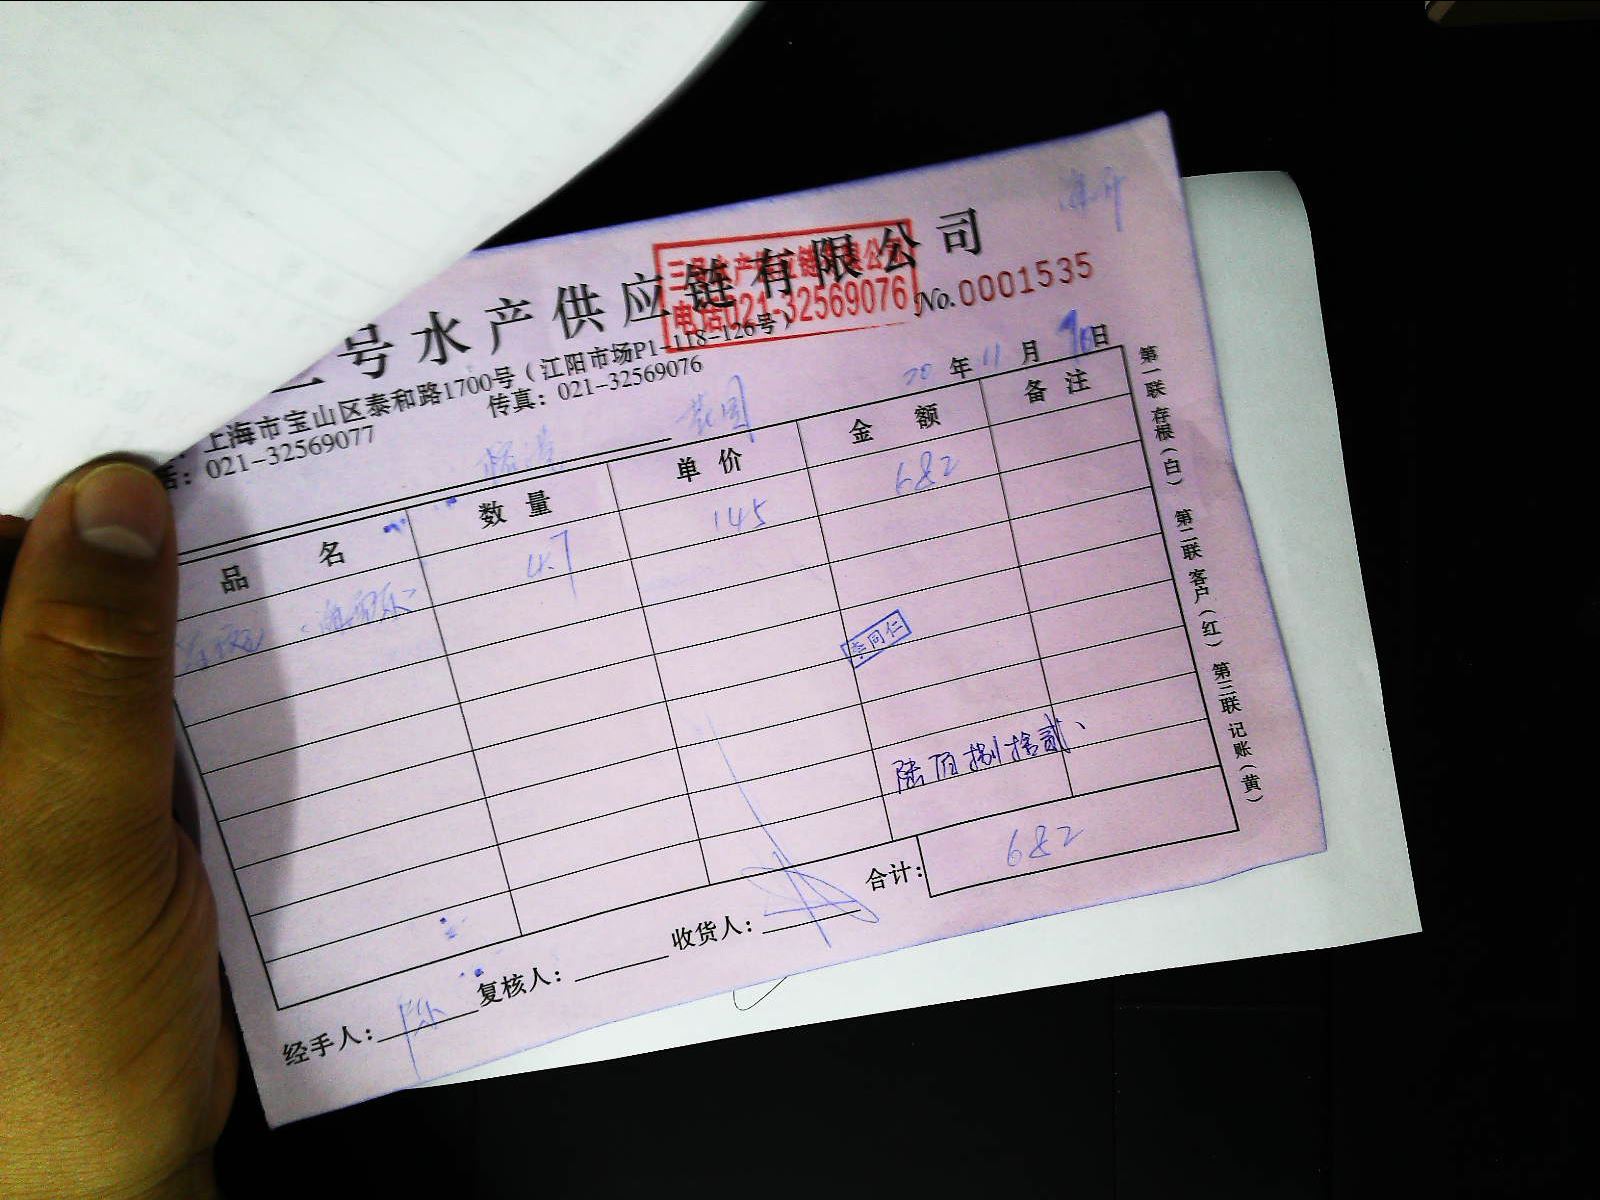 三号水产供应链有限公司
三号水产供应链有限公司
电话021-32569076
No.0001535
上海市宝山区泰和路1700号(江阳市场P1-118-126号)
话:021-32569077 传真:021-32569076
20年11月 日
品 名 数 量 单 价 金 额 备 注
4.7 145 682
李同仁
陆佰捌拾贰
合计: 682
经手人: 陈 复核人: 收货人:
第一联 存根(白) 第二联 客户(红) 第三联 记账(黄)